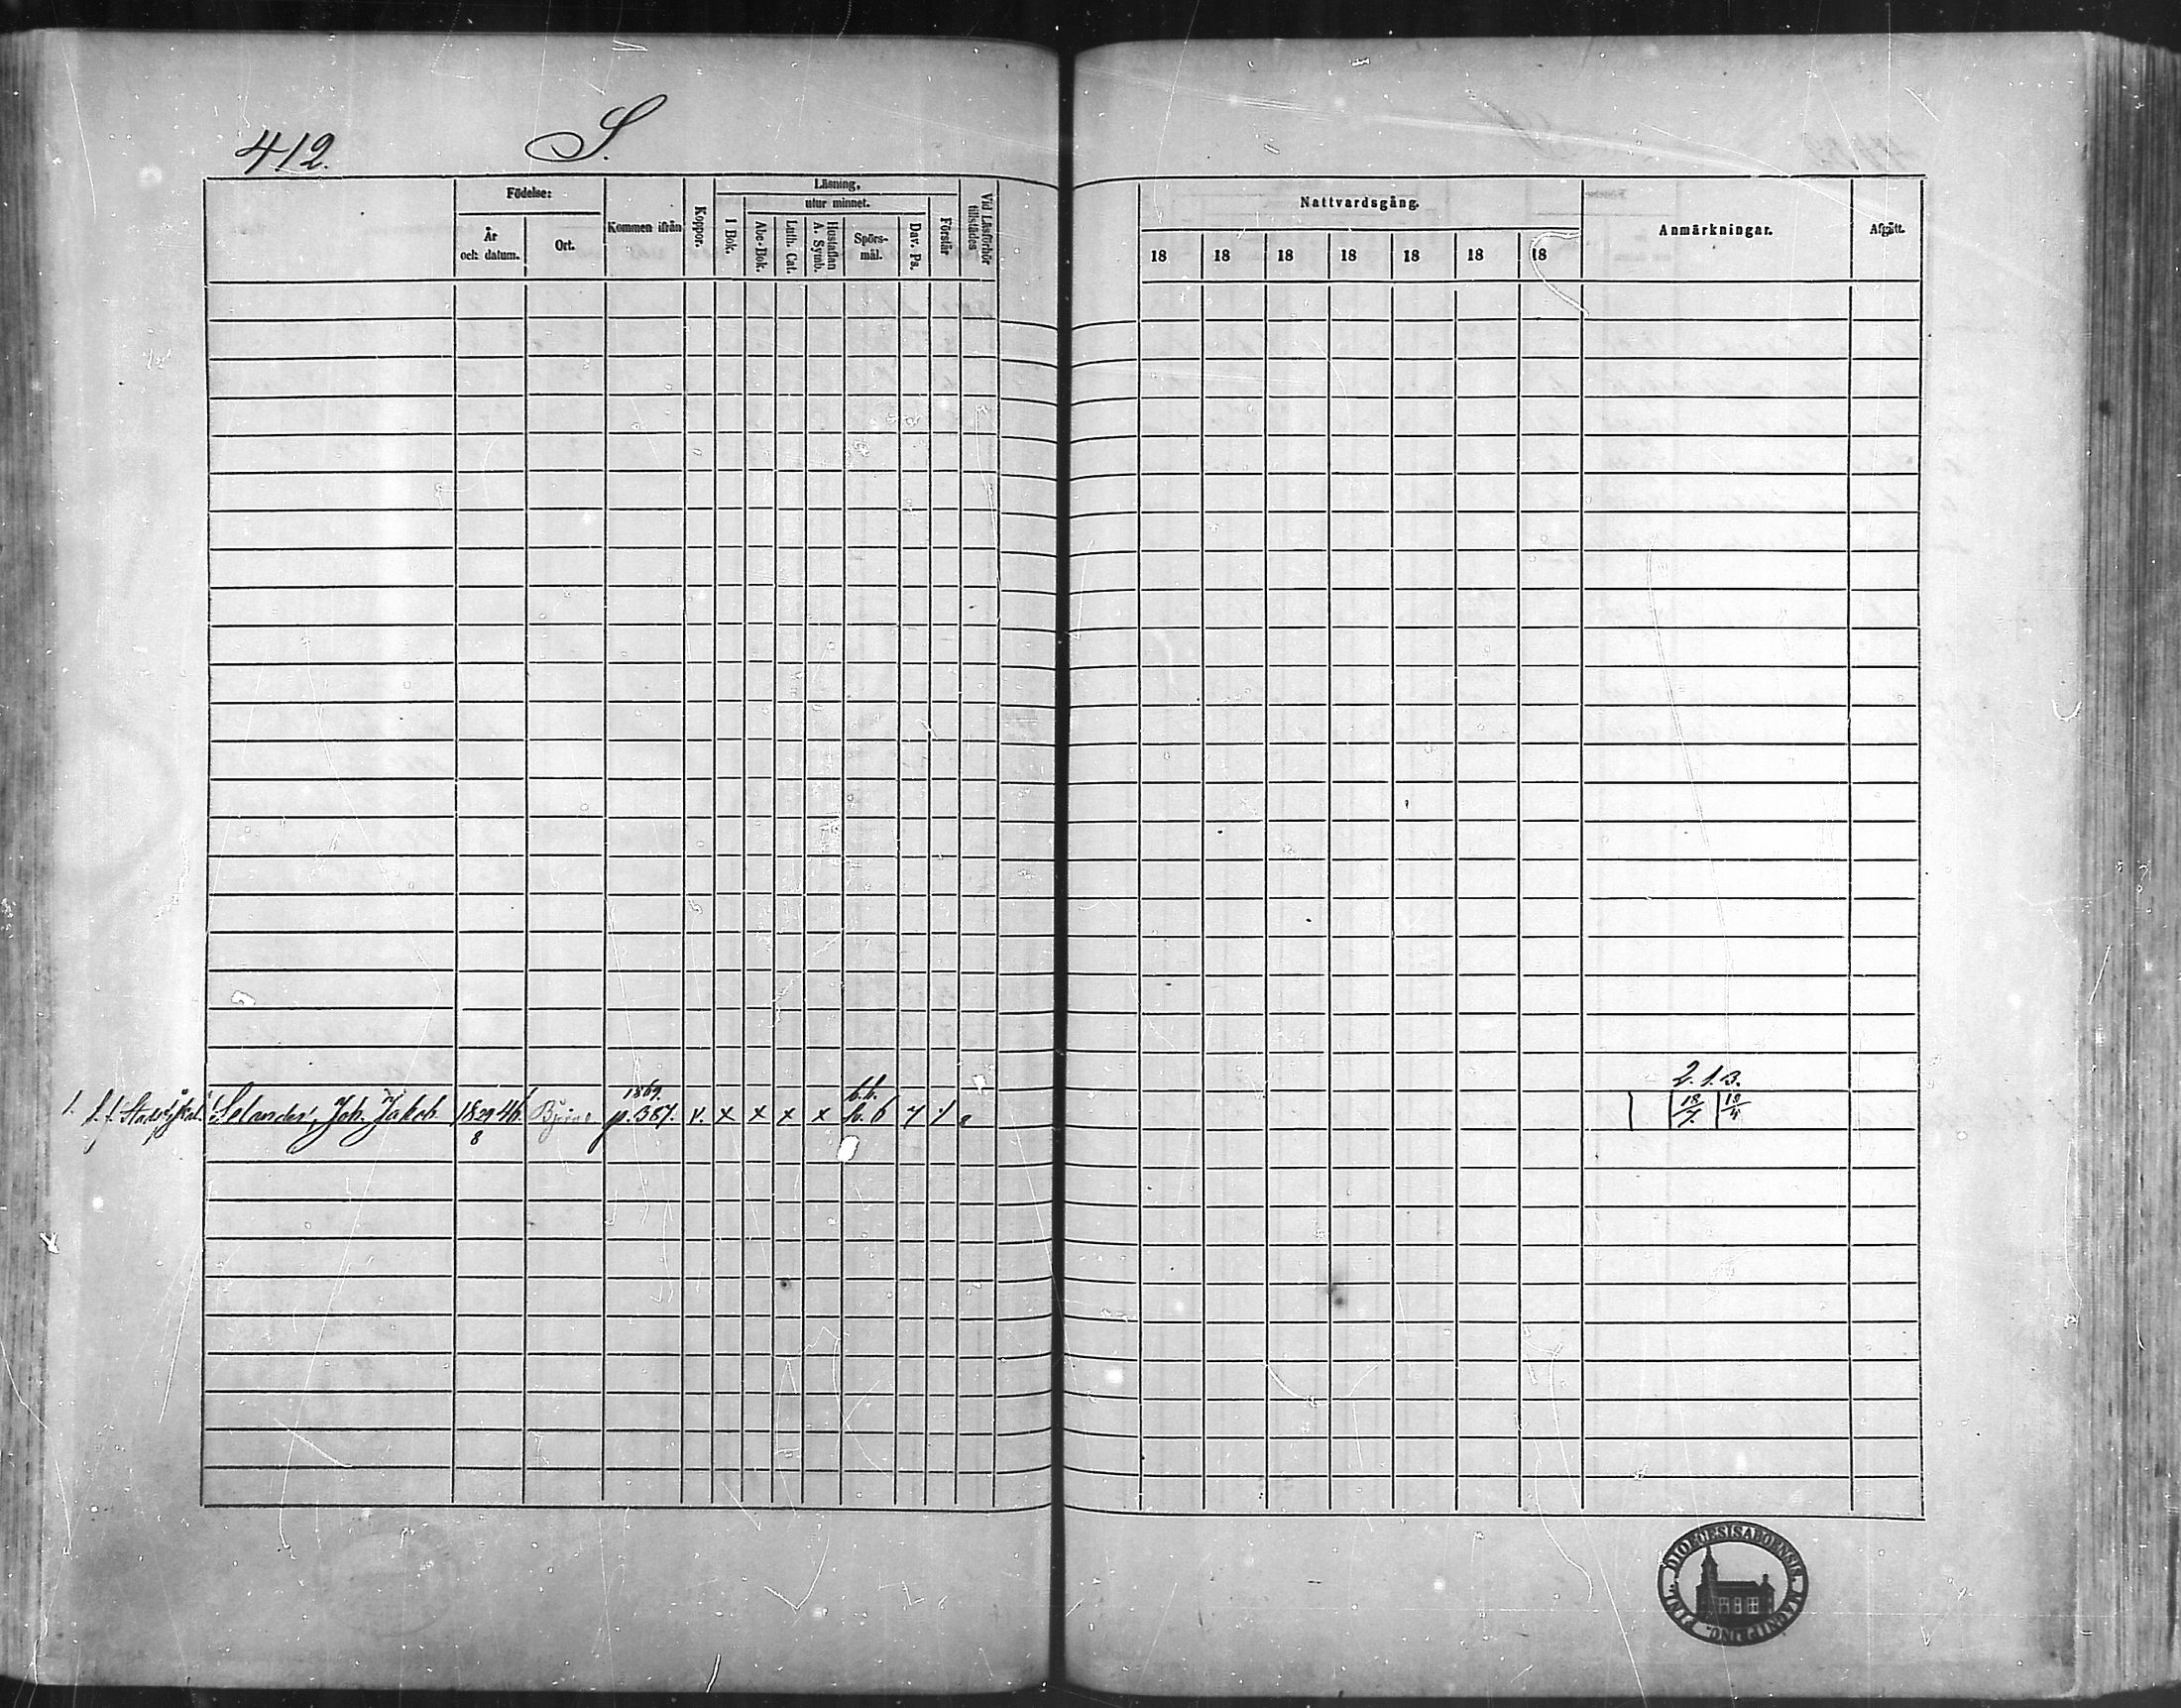 412. S.
Födelse:
År och datum.
Ort.
Kommen ifrån
Koppor.
Läsning,
I Bok.
utur minnet.
Abc-Bok.
Luth. Cat.
Hustaflan A. Symb.
Spörsmål.
Dav. Ps.
Förstår
Vid Läsförhör tillstädes
Nattvardsgång.
18 18 18 18 18 18 18
Anmärkningar.
Afgått.
1869. b.b. 2. 1. 3.
1. Selander, Joh. Jakob 18 29/8 46. p. 387. v. x x x x b. 6 18/7 19/4
DIOECESIS ABOENSIS